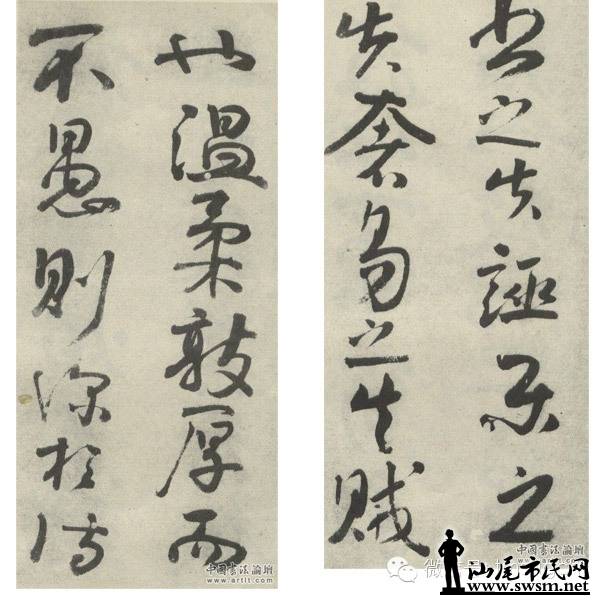 書之失誣樂之
失奢易之失賊
也溫柔敦厚而
不愚則深於詩
中國書法論壇
中國書法論壇
汕尾市民网
www.swsm.net